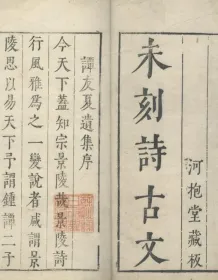 未刻詩古文
河抱堂藏板
譚友夏遺集序
今天下蓋知宗景陵哉景陵詩
行風雅爲之一變說者咸謂景
陵思以易天下予謂鍾譚二子